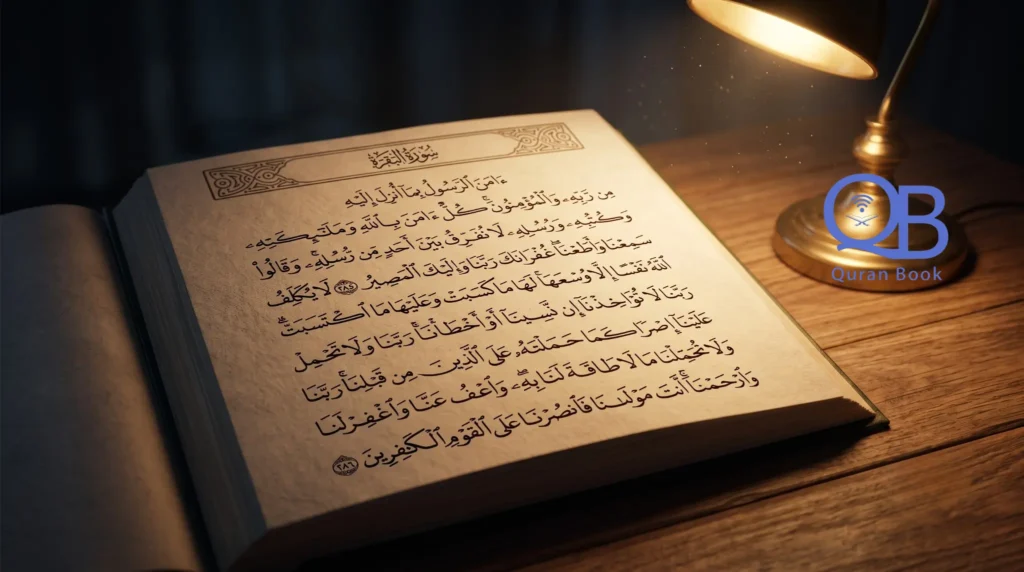 سُورَةُ البَقَرَةِ
ءَامَنَ ٱلرَّسُولُ بِمَآ أُنزِلَ إِلَيْهِ
مِن رَّبِّهِۦ وَٱلْمُؤْمِنُونَ ۚ كُلٌّ ءَامَنَ بِٱللَّهِ وَمَلَٰٓئِكَتِهِۦ
وَكُتُبِهِۦ وَرُسُلِهِۦ لَا نُفَرِّقُ بَيْنَ أَحَدٍ مِّن رُّسُلِهِۦ ۚ وَقَالُوا۟
سَمِعْنَا وَأَطَعْنَا ۖ غُفْرَانَكَ رَبَّنَا وَإِلَيْكَ ٱلْمَصِيرُ ٢٨٥ لَا يُكَلِّفُ
ٱللَّهُ نَفْسًا إِلَّا وُسْعَهَا ۚ لَهَا مَا كَسَبَتْ وَعَلَيْهَا مَا ٱكْتَسَبَتْ ۗ
رَبَّنَا لَا تُؤَاخِذْنَآ إِن نَّسِينَآ أَوْ أَخْطَأْنَا ۚ رَبَّنَا وَلَا تَحْمِلْ
عَلَيْنَآ إِصْرًا كَمَا حَمَلْتَهُۥ عَلَى ٱلَّذِينَ مِن قَبْلِنَا ۚ رَبَّنَا
وَلَا تُحَمِّلْنَا مَا لَا طَاقَةَ لَنَا بِهِۦ ۖ وَٱعْفُ عَنَّا وَٱغْفِرْ لَنَا
وَٱرْحَمْنَآ ۚ أَنتَ مَوْلَىٰنَا فَٱنصُرْنَا عَلَى ٱلْقَوْمِ ٱلْكَٰفِرِينَ ٢٨٦
QB
Quran Book